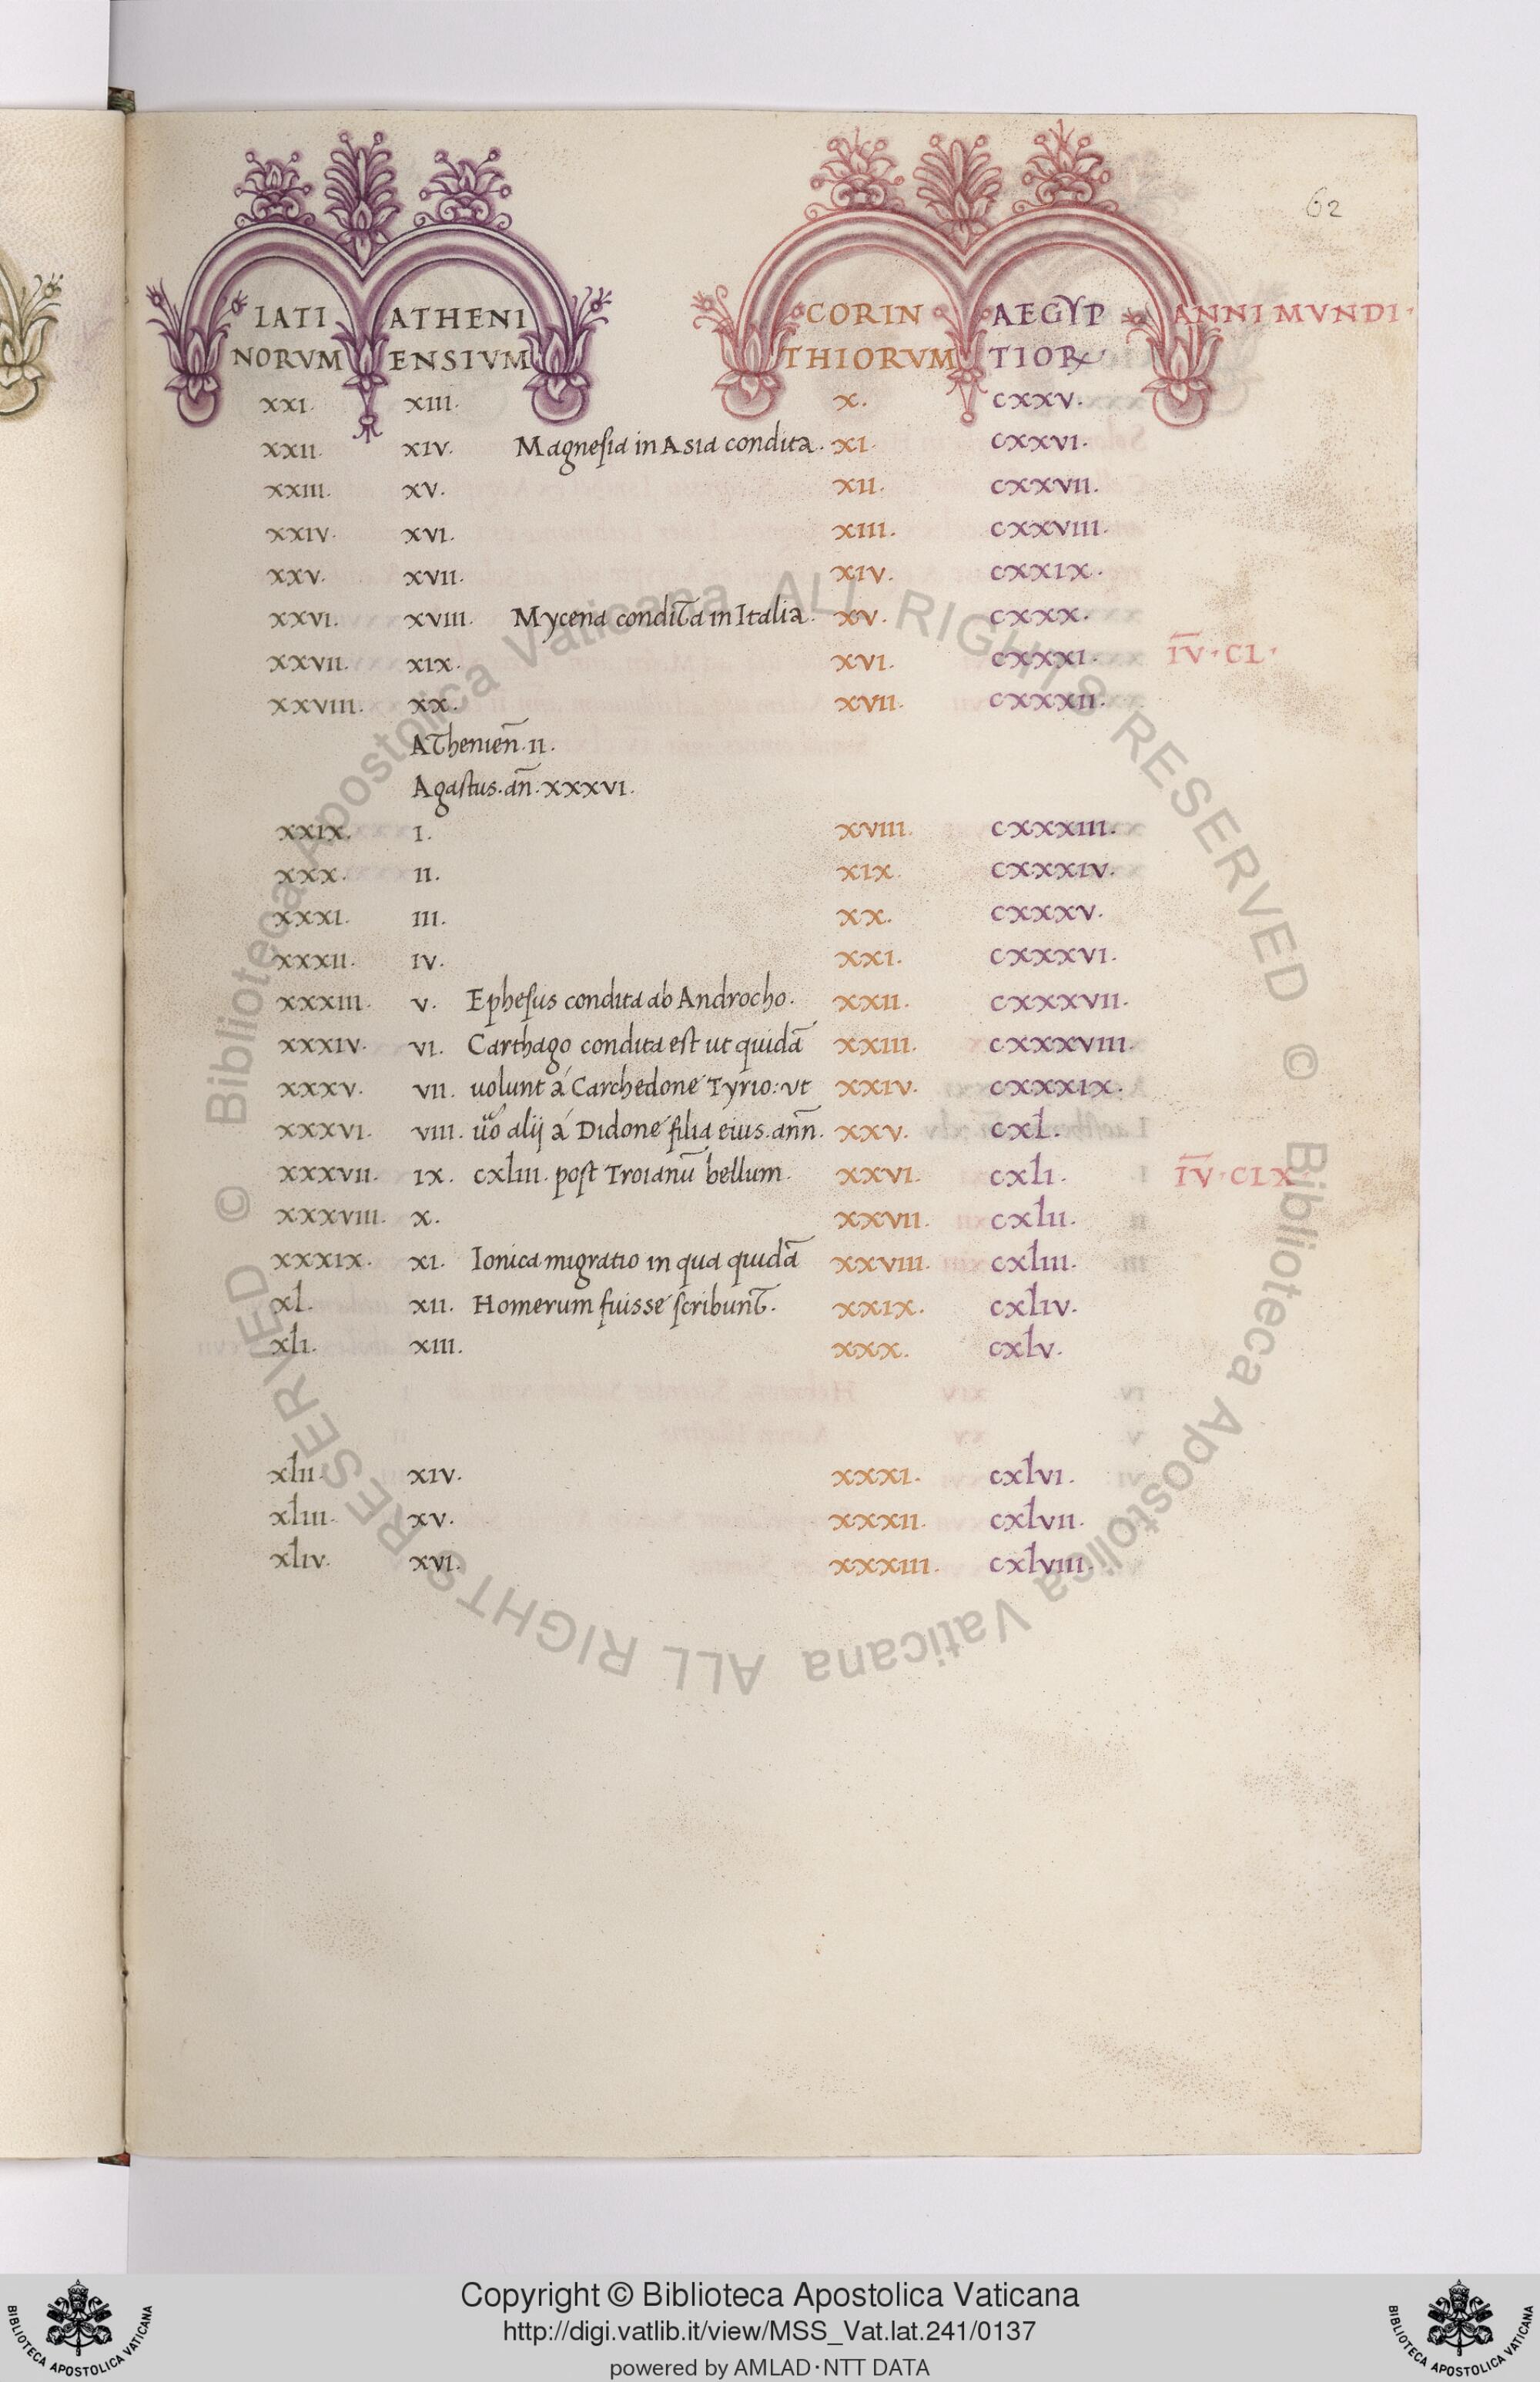 62
LATI ATHENI CORIN AEGYP ANNI MVNDI·
NORVM ENSIVM THIORVM TIOR
XXI. XIII. X. CXXV.
XXII. XIV. Magnesia in Asia condita. XI. CXXVI.
XXIII. XV. XII. CXXVII.
XXIV. XVI. XIII. CXXVIII.
XXV. XVII. XIV. CXXIX.
XXVI. XVIII. Mycena condita in Italia. XV. CXXX.
XXVII. XIX. XVI. CXXXI. I̅V̅·CL·
XXVIII. XX. XVII. CXXXII.
Athenien̄.II.
Agastus.an̄.XXXVI.
XXIX. I. XVIII. CXXXIII.
XXX. II. XIX. CXXXIV.
XXXI. III. XX. CXXXV.
XXXII. IV. XXI. CXXXVI.
XXXIII. V. Ephesus condita ab Androcho. XXII. CXXXVII.
XXXIV. VI. Carthago condita est ut quidā XXIII. CXXXVIII.
XXXV. VII. uolunt á Carchedone Tyrio: ut XXIV. CXXXIX.
XXXVI. VIII. ūo alij á Didone filia eius.ann̄. XXV. CXL.
XXXVII. IX. cxliii. post Troianū bellum. XXVI. CXLI. I̅V̅·CLX
XXXVIII. X. XXVII. CXLII.
XXXIX. XI. Ionica migratio in qua quidā XXVIII. CXLIII.
XL. XII. Homerum fuisse scribunt. XXIX. CXLIV.
XLI. XIII. XXX. CXLV.
XLII. XIV. XXXI. CXLVI.
XLIII. XV. XXXII. CXLVII.
XLIV. XVI. XXXIII. CXLVIII.
© Biblioteca Apostolica Vaticana ALL RIGHTS RESERVED © Biblioteca Apostolica Vaticana ALL RIGHTS RESERVED
Copyright © Biblioteca Apostolica Vaticana
http://digi.vatlib.it/view/MSS_Vat.lat.241/0137
powered by AMLAD·NTT DATA
BIBLIOTECA APOSTOLICA VATICANA
BIBLIOTECA APOSTOLICA VATICANA